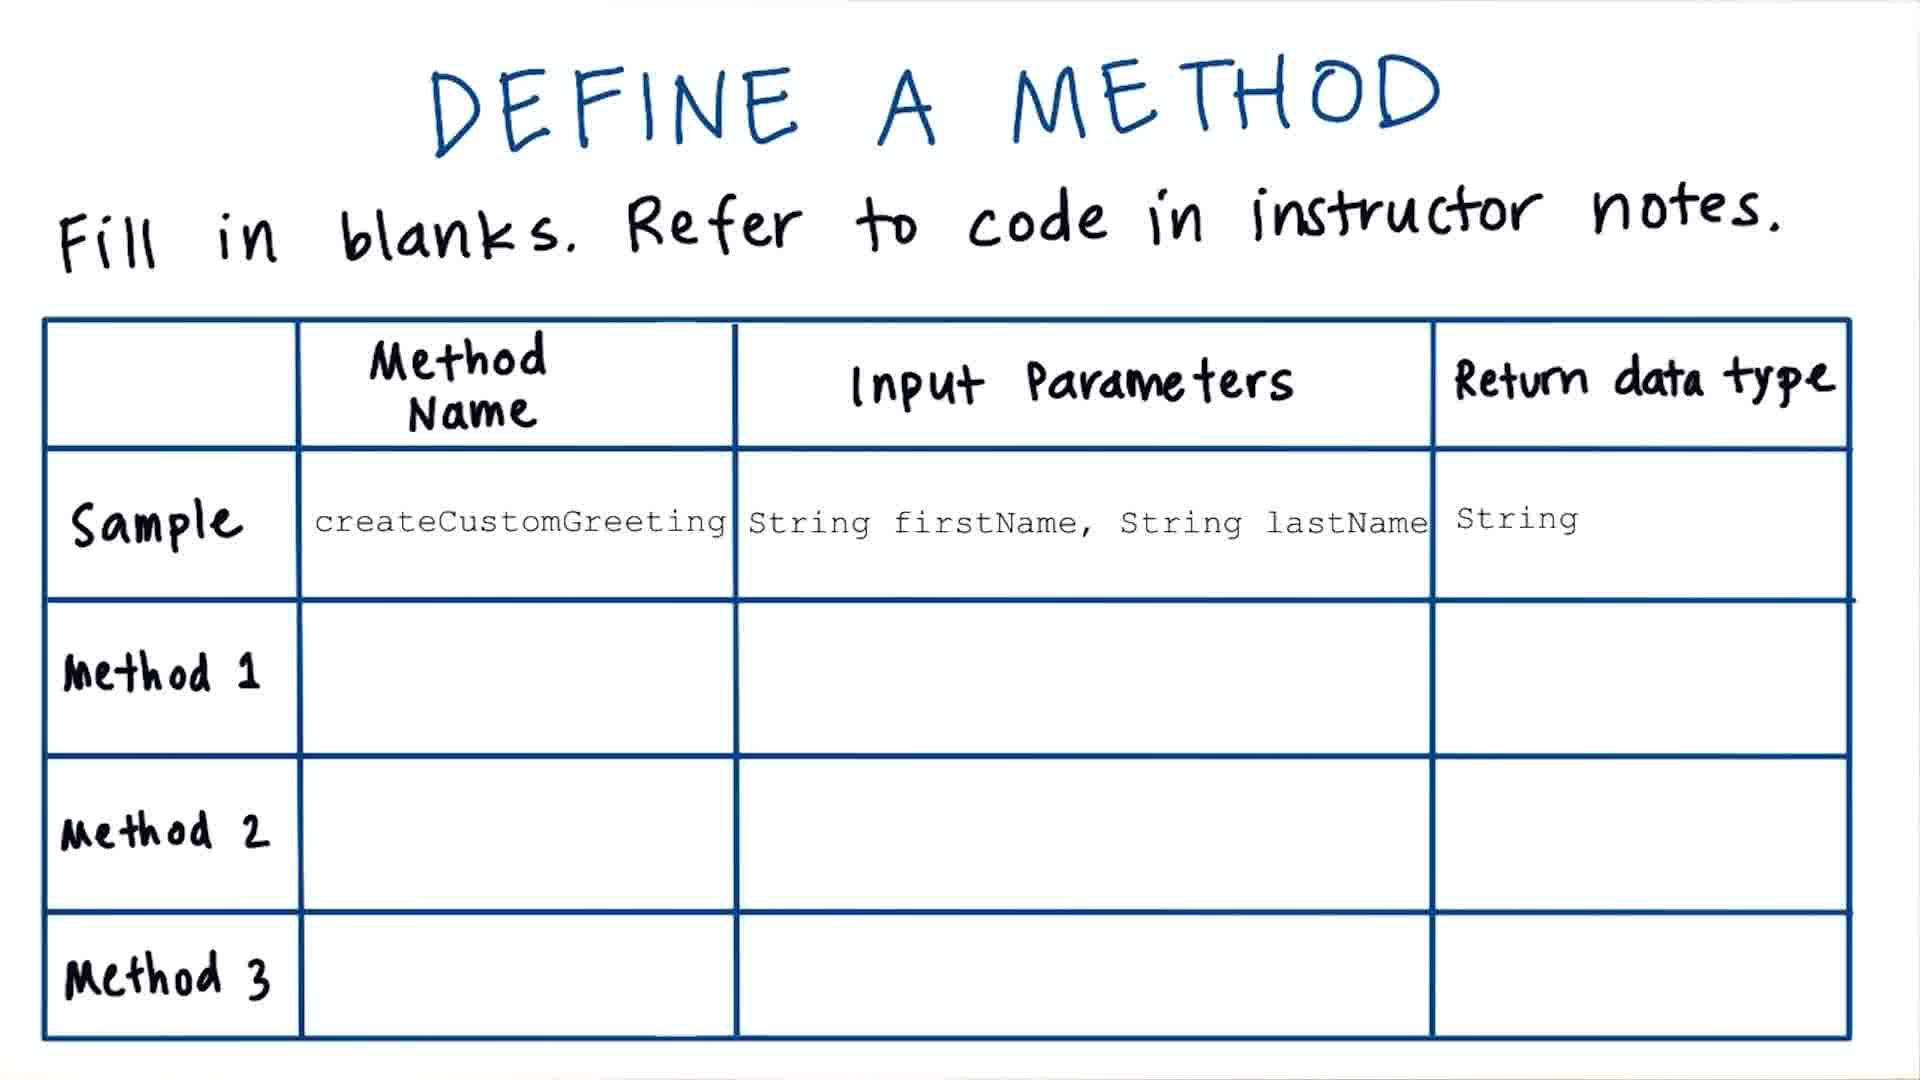 DEFINE A METHOD
Fill in blanks. Refer to code in instructor notes.
Method Name
Input Parameters
Return data type
Sample
createCustomGreeting
String firstName, String lastName
String
Method 1
Method 2
Method 3